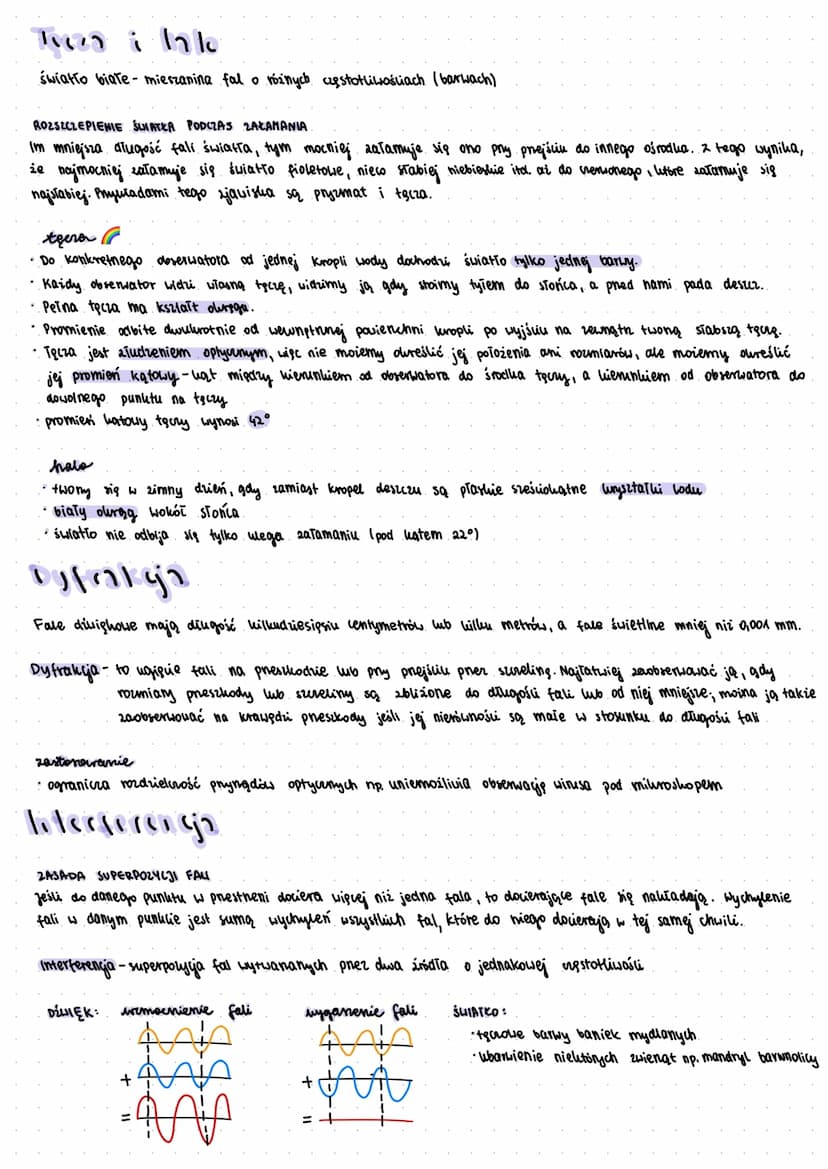 Tęcza i halo
światło białe - mieszanina fal o różnych częstotliwościach (barwach)
ROZSZCZEPIENIE ŚWIATŁA PODCZAS ZAŁAMANIA
Im mniejsza długość fali światła, tym mocniej załamuje się ono przy przejściu do innego ośrodka. Z tego wynika,
że najmocniej załamuje się światło fioletowe, nieco słabiej niebieskie itd. aż do czerwonego, które załamuje się
najsłabiej. Przykładami tego zjawiska są pryzmat i tęcza.
tęcza 🌈
· Do konkretnego obserwatora od jednej kropli wody dochodzi światło tylko jednej barwy.
· Każdy obserwator widzi własną tęczę, widzimy ją gdy stoimy tyłem do słońca, a przed nami pada deszcz.
· Pełna tęcza ma kształt okręgu.
· Promienie odbite dwukrotnie od wewnętrznej powierzchni kropli po wyjściu na zewnątrz tworzą słabszą tęczę.
· Tęcza jest złudzeniem optycznym, więc nie możemy określić jej położenia ani rozmiarów, ale możemy określić
jej promień kątowy - kąt między kierunkiem od obserwatora do środka tęczy, a kierunkiem od obserwatora do
dowolnego punktu na tęczy
· promień kątowy tęczy wynosi 42°
halo
· tworzy się w zimny dzień, gdy zamiast kropel deszczu są płaskie sześciokątne kryształki lodu
· biały okręg wokół słońca
· światło nie odbija się tylko ulega załamaniu (pod kątem 22°)
Dyfrakcja
Fale dźwiękowe mają długość kilkudziesięciu centymetrów lub kilku metrów, a fale świetlne mniej niż 0,001 mm.
Dyfrakcja - to ugięcie fali na przeszkodzie lub przy przejściu przez szczelinę. Najłatwiej zaobserwować ją, gdy
rozmiary przeszkody lub szczeliny są zbliżone do długości fali lub od niej mniejsze; można ją także
zaobserwować na krawędzi przeszkody jeśli jej nierówności są małe w stosunku do długości fali
zastosowanie
· ogranicza rozdzielczość przyrządów optycznych np. uniemożliwia obserwację wirusa pod mikroskopem
Interferencja
ZASADA SUPERPOZYCJI FALI
Jeśli do danego punktu w przestrzeni dociera więcej niż jedna fala, to docierające fale się nakładają. Wychylenie
fali w danym punkcie jest sumą wychyleń wszystkich fal, które do niego docierają w tej samej chwili.
Interferencja - superpozycja fal wytwarzanych przez dwa źródła o jednakowej częstotliwości
DŹWIĘK: wzmocnienie fali wygaszenie fali ŚWIATŁO:
· tęczowe barwy baniek mydlanych
· ubarwienie niektórych zwierząt np. mandryl barwnolicy
+ +
= =